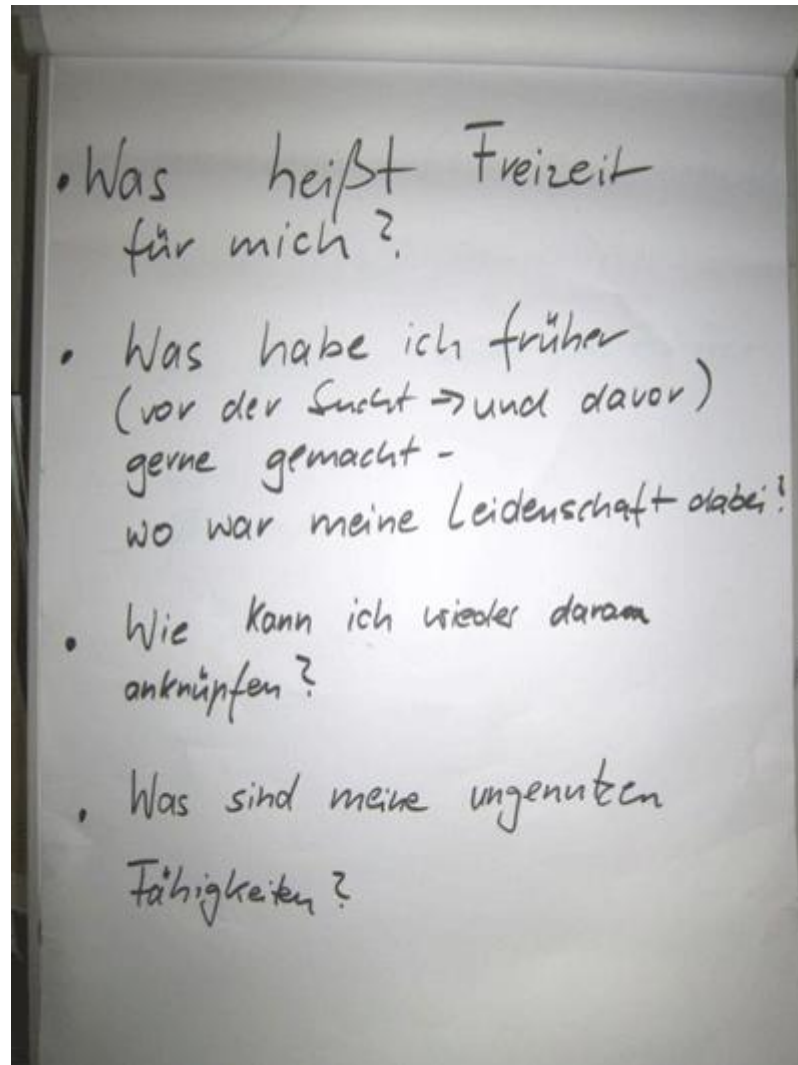 • Was heißt Freizeit
für mich?
• Was habe ich früher
(vor der Sucht → und davor)
gerne gemacht -
wo war meine Leidenschaft dabei?
• Wie kann ich wieder daran
anknüpfen?
• Was sind meine ungenutzen
Fähigkeiten?